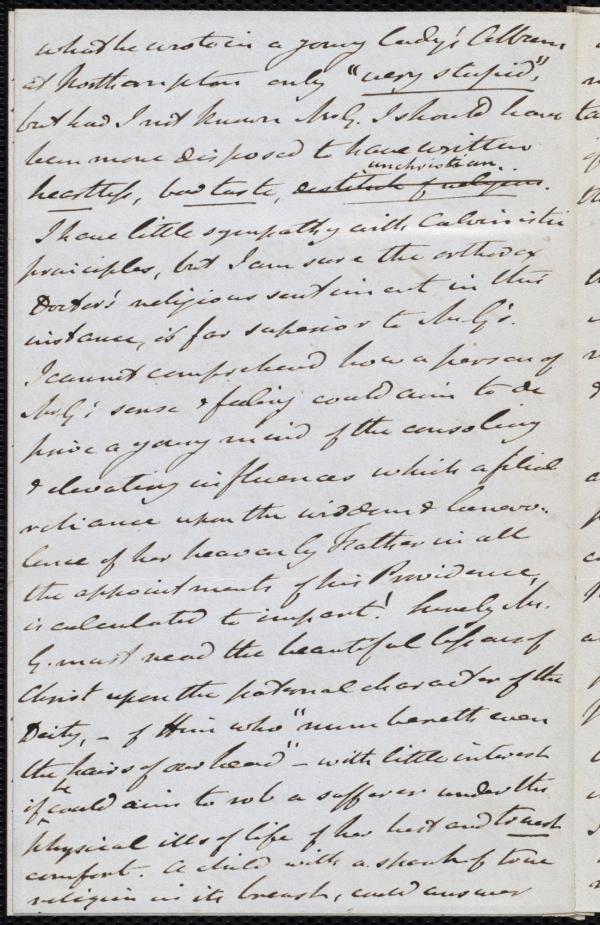 what he wrote in a young lady's Album
at Northampton only "very stupid",
but had I not known Mr G. I should have
been more disposed to have written
unchristian.
heartless, bad taste, destitute of religion.
I have little sympathy with Calvinistic
principles, but I am sure the orthodox
Doctor's religious sentiment in this
instance, is far superior to Mr G's.
I cannot comprehend how a person of
Mr G's sense & feeling could aim to de
prive a young mind of the consoling
& elevating influences which a filial
reliance upon the wisdom & benevo-
lence of her heavenly Father in all
the appointments of his Providence,
is calculated to impart! Surely Mr.
G. must read the beautiful lessons of
Christ upon the paternal character of the
Deity, - of Him who "numbereth even
the hairs of our head" - with little interest
he
if could aim to rob a sufferer under the
physical ills of life of her best and truest
comfort. A child with a spark of true
religion in its breast, could answer